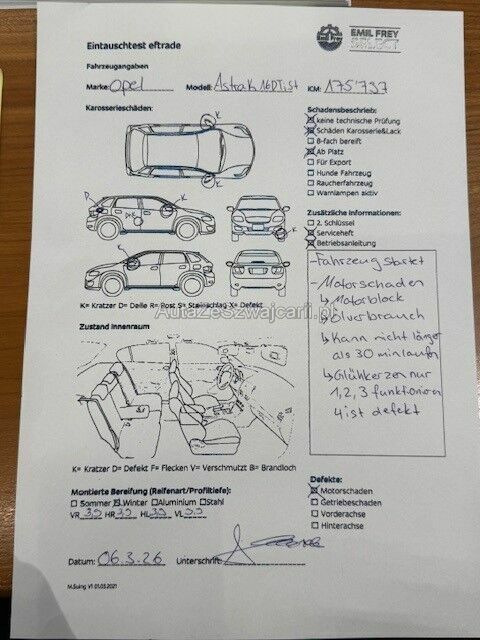 EMIL FREY
SELECT
Eintauschtest eftrade
Fahrzeugangaben
Marke: Opel Modell: Astra K 1.6DTist KM: 175'737
Karosserieschäden:
K
K
D
K
D+K
K
K
K= Kratzer D= Delle R= Rost S= Steinschlag X= Defekt
Schadensbeschrieb:
keine technische Prüfung
Schäden Karosserie&Lack
8-fach bereift
Ab Platz
Für Export
Hunde Fahrzeug
Raucherfahrzeug
Warnlampen aktiv
Zusätzliche Informationen:
2. Schlüssel
Serviceheft
Betriebsanleitung
- Fahrzeug startet
- Motorschaden
↳ Motorblock
↳ Ölverbrauch
↳ Kann nicht länger
als 30 min laufen
↳ Glühkerzen nur
1,2,3 funktionieren
4 ist defekt
AutaZeSzwajcarii.pl
Zustand Innenraum
K= Kratzer D= Defekt F= Flecken V= Verschmutzt B= Brandloch
Montierte Bereifung (Reifenart/Profiltiefe):
Sommer Winter Aluminium Stahl
VR HR HL VL
Defekte:
Motorschaden
Getriebeschaden
Vorderachse
Hinterachse
Datum: 06.3.26 Unterschrift:
M.Suing V1 01.03.2021